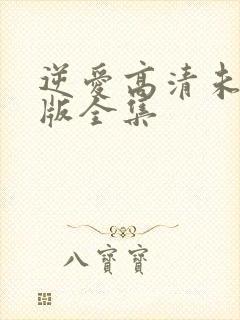 逆愛高清未
版全集
八寶寶